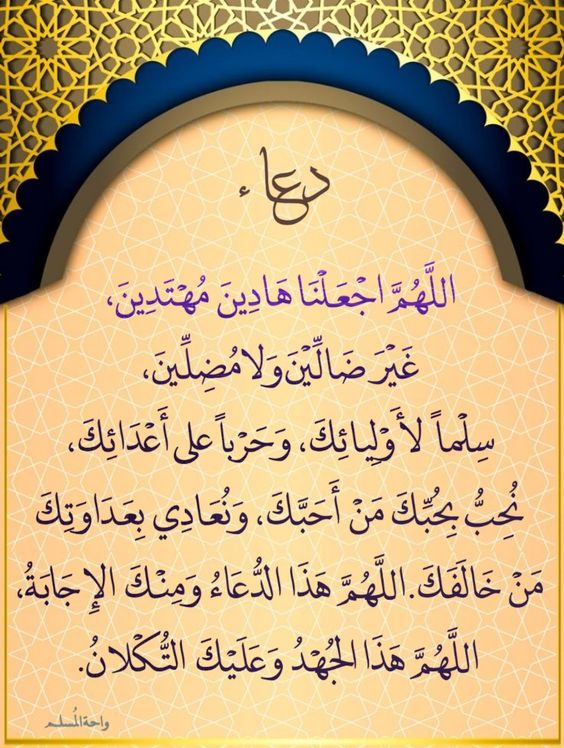 دعاء
اللَّهُمَّ اجْعَلْنَا هَادِينَ مُهْتَدِينَ،
غَيْرَ ضَالِّيْنَ وَلَا مُضِلِّينَ،
سِلْماً لأَوْلِيائِكَ، وَحَرْباً على أَعْدَائِكَ،
نُحِبُّ بِحُبِّكَ مَنْ أَحَبَّكَ، وَنُعَادِي بِعَدَاوَتِكَ
مَنْ خَالَفَكَ. اللَّهُمَّ هَذَا الدُّعَاءُ وَمِنْكَ الإِجَابَةُ،
اللَّهُمَّ هَذَا الجُهْدُ وَعَلَيْكَ التُّكْلانُ.
واحة المُسلم